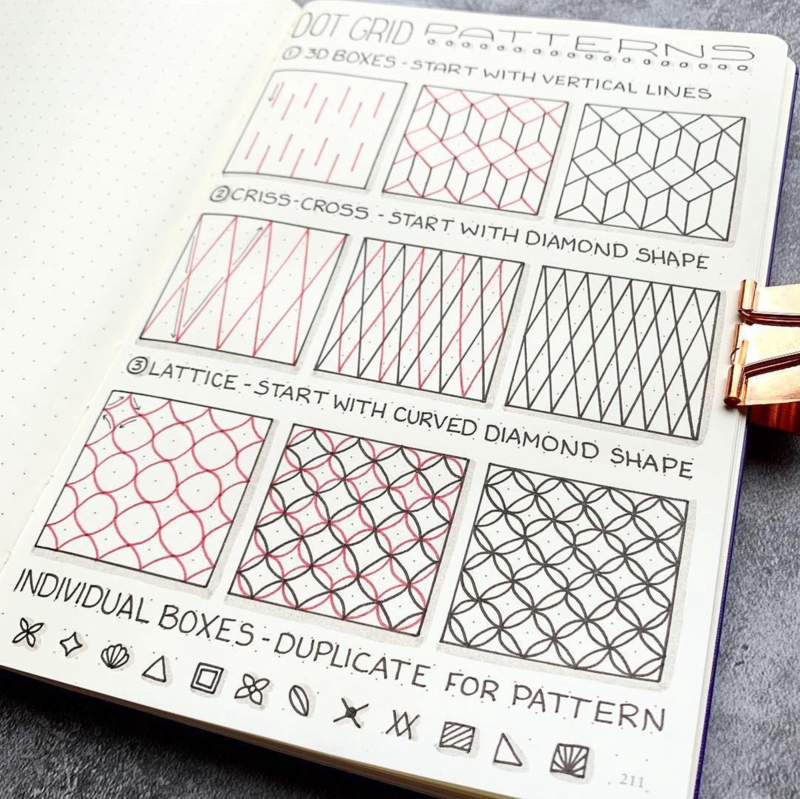 DOT GRID PATTERNS
① 3D BOXES - START WITH VERTICAL LINES
② CRISS-CROSS - START WITH DIAMOND SHAPE
③ LATTICE - START WITH CURVED DIAMOND SHAPE
INDIVIDUAL BOXES - DUPLICATE FOR PATTERN
211